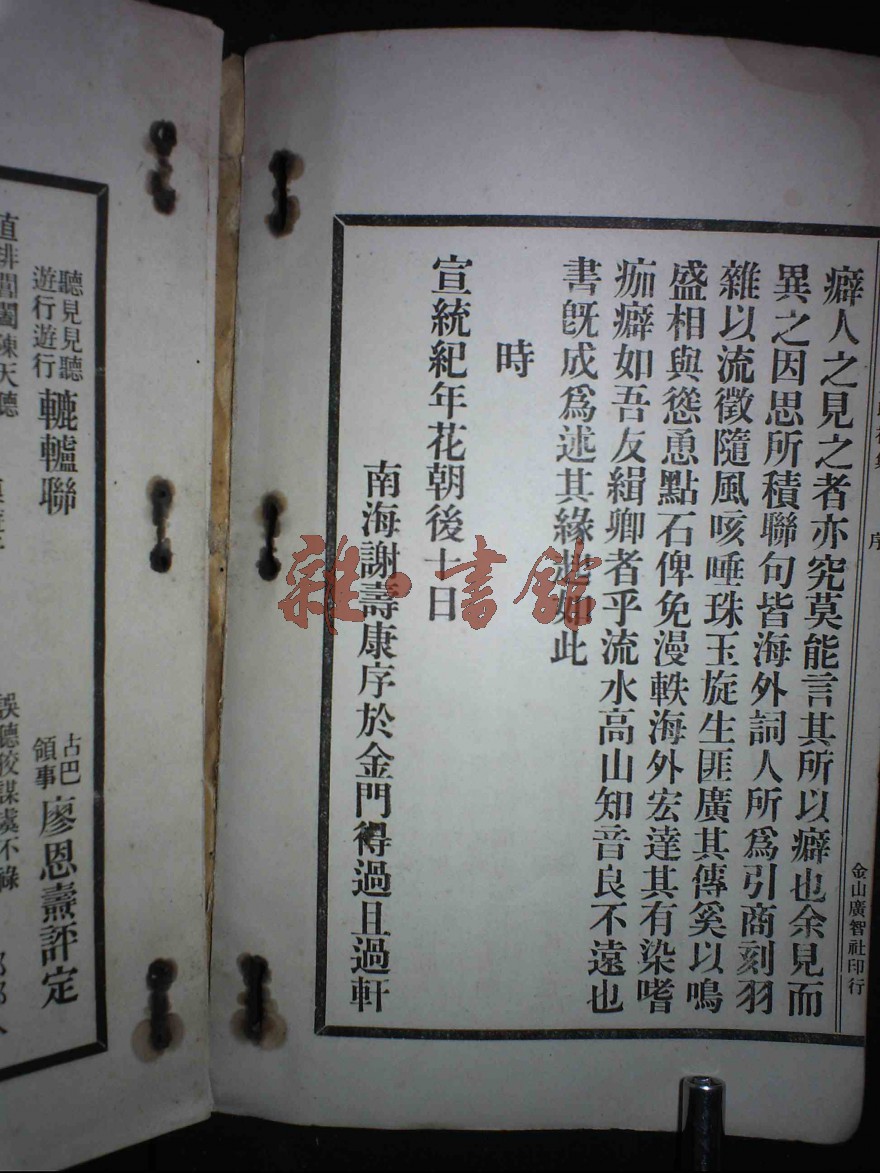 序
金山廣智社印行
癖人之見之者亦究莫能言其所以癖也余見而
異之因思所積聯句皆海外詞人所爲引商刻羽
雜以流徵隨風咳唾珠玉旋生匪廣其傳奚以鳴
盛相與慫恿點石俾免漫軼海外宏達其有染嗜
痂癖如吾友緝卿者乎流水高山知音良不遠也
書旣成爲述其緣起如此
時
宣統紀年花朝後十日
南海謝壽康序於金門得過且過軒
雜·書館
聽見見聽
遊行遊行
轆轤聯
古巴
領事
廖恩燾評定
陳天聽
誤聽狡謀虞不祿